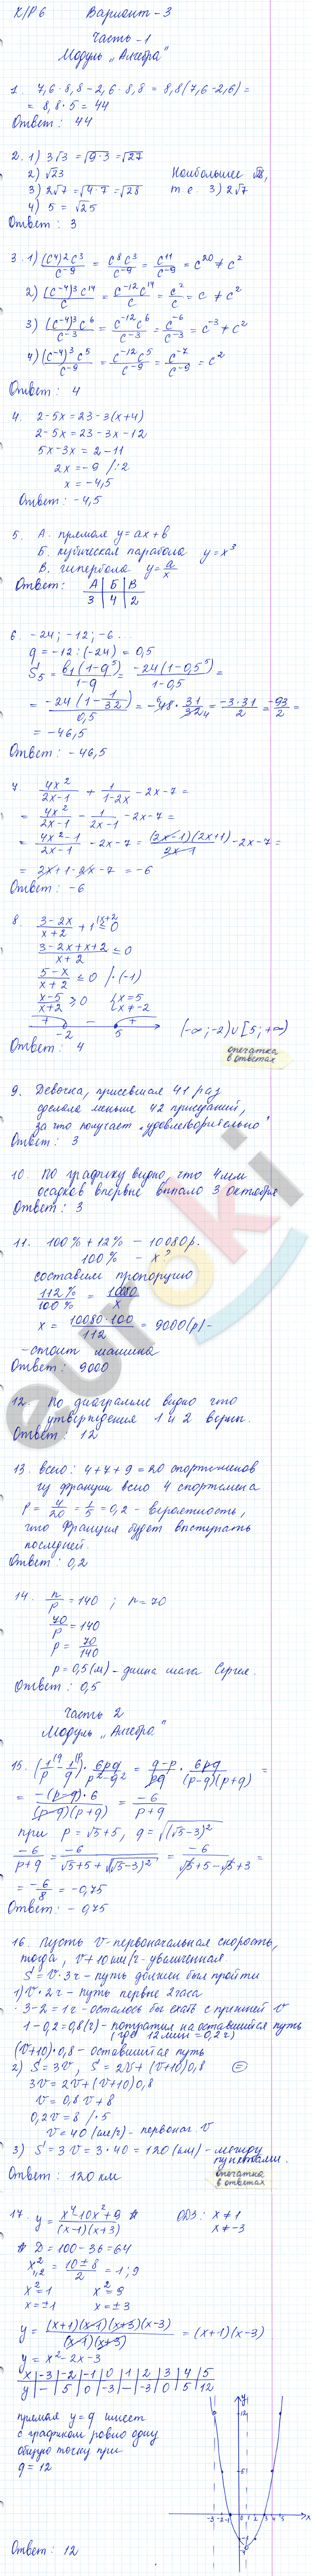 К/Р 6 Вариант-3
Часть-1
Модуль „Алгебра"
1. 7,6·8,8-2,6·8,8 = 8,8(7,6-2,6) =
= 8,8·5 = 44
Ответ: 44
2. 1) 3√3 = √9·3 = √27
2) √23 Наибольшее √28,
3) 2√7 = √4·7 = √28 т.е. 3) 2√7
4) 5 = √25
Ответ: 3
3. 1) (c⁴)²c³/c⁻⁹ = c⁸c³/c⁻⁹ = c¹¹/c⁻⁹ = c²⁰ ≠ c²
2) (c⁻⁴)³c¹⁴/c = c⁻¹²c¹⁴/c = c²/c = c ≠ c²
3) (c⁻⁴)³c⁶/c⁻³ = c⁻¹²c⁶/c⁻³ = c⁻⁶/c⁻³ = c⁻³ ≠ c²
4) (c⁻⁴)³c⁵/c⁻⁹ = c⁻¹²c⁵/c⁻⁹ = c⁻⁷/c⁻⁹ = c²
Ответ: 4
4. 2-5x = 23-3(x+4)
2-5x = 23-3x-12
5x-3x = 2-11
2x = -9 /:2
x = -4,5
Ответ: -4,5
5. А. прямая y = ax+b
Б. кубическая парабола y = x³
В. гипербола y = a/x
Ответ: А Б В
3 4 2
6. -24; -12; -6...
q = -12:(-24) = 0,5
S₅ = b₁(1-q⁵)/1-q = -24(1-0,5⁵)/1-0,5 =
= -24(1-1/32)/0,5 = -48·31/32 = -3·31/2 = -93/2 =
= -46,5
Ответ: -46,5
7. 4x²/2x-1 + 1/1-2x - 2x-7 =
= 4x²/2x-1 - 1/2x-1 - 2x-7 =
= 4x²-1/2x-1 - 2x-7 = (2x-1)(2x+1)/2x-1 - 2x-7 =
= 2x+1-2x-7 = -6
Ответ: -6
8. 3-2x/x+2 + 1 ≤ 0
3-2x+x+2/x+2 ≤ 0
5-x/x+2 ≤ 0 /·(-1)
x-5/x+2 ≥ 0 {x=5 x≠-2
+ - +
-2 5 (-∞;-2)∪[5;+∞)
Ответ: 4 опечатка в ответах
9. Девочка, присевшая 41 раз
сделала меньше 42 приседаний,
за что получает „удовлетворительно"
Ответ: 3
10. По графику видно, что 4мм
осадков впервые выпало 3 октября
Ответ: 3
11. 100% + 12% - 10080р.
100% - x?
составим пропорцию
112%/100% = 10080/x
x = 10080·100/112 = 9000(р) -
- стоит машина
Ответ: 9000
12. По диаграмме видно что
утверждения 1 и 2 верны.
Ответ: 12
13. Всего: 4+7+9 = 20 спортсменов
из Франции всего 4 спортсмена
P = 4/20 = 1/5 = 0,2 - вероятность,
что Франция будет выступать
последней.
Ответ: 0,2
14. n/p = 140; n = 70
70/p = 140
p = 70/140
p = 0,5(м) - длина шага Сергея.
Ответ: 0,5
Часть 2
Модуль „Алгебра"
15. (1/p - 1/q)·6pq/p²-q² = q-p/pq·6pq/(p-q)(p+q) =
= -(p-q)·6/(p-q)(p+q) = -6/p+q
при p = √5+5, q = √(√5-3)²
-6/p+q = -6/√5+5+√(√5-3)² = -6/√5+5-√5+3 =
= -6/8 = -0,75
Ответ: -0,75
16. Пусть v-первоначальная скорость,
тогда, v+10км/ч-увеличенная
S = v·3ч - путь должен был пройти
1) v·2ч - путь первые 2часа
3-2 = 1ч - осталось бы ехать с прежней v
1-0,2 = 0,8(ч) - потратил на оставшийся путь
(где 12мин = 0,2ч)
(v+10)·0,8 - оставшийся путь
2) S = 3v, S = 2v+(v+10)0,8 =
3v = 2v+(v+10)0,8
v = 0,8v+8
0,2v = 8 /·5
v = 40(км/ч) - первонач. v
3) S = 3v = 3·40 = 120(км) - между
пунктами.
Ответ: 120 км опечатка в ответах
17. y = x⁴-10x²+9/(x-1)(x+3) * ОДЗ: x≠1
x≠-3
* D = 100-36 = 64
x²₁,₂ = 10±8/2 = 1; 9
x² = 1 x² = 9
x = ±1 x = ±3
y = (x+1)(x-1)(x+3)(x-3)/(x-1)(x+3) = (x+1)(x-3)
y = x²-2x-3
x -3 -2 -1 0 1 2 3 4 5
y - 5 0 -3 - -3 0 5 12
прямая y = q имеет
с графиком ровно одну
общую точку при
q = 12
Ответ: 12